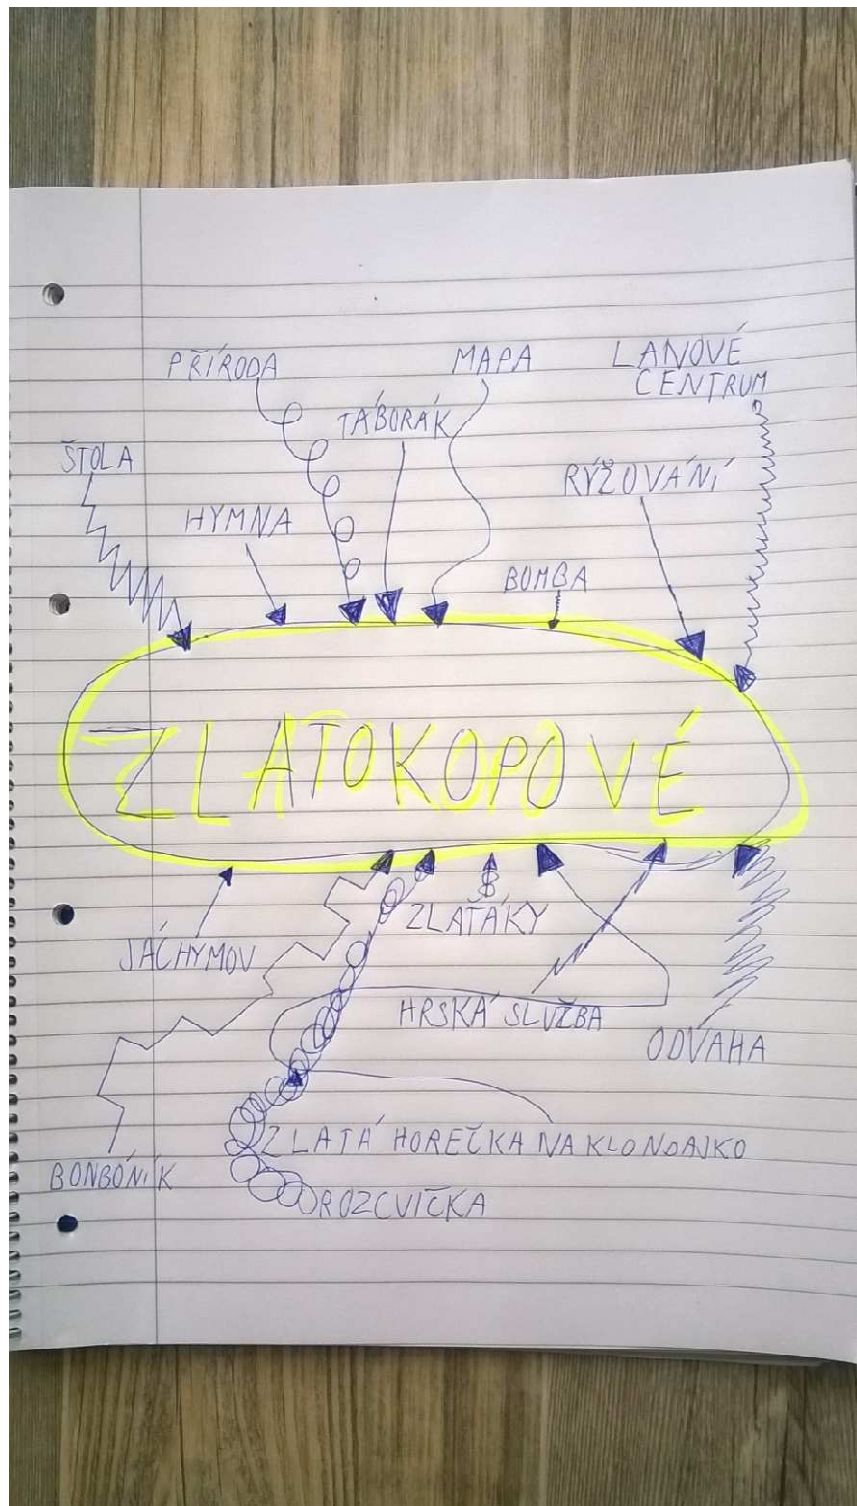 PŘÍRODA
MAPA
LANOVÉ
CENTRUM
TÁBORÁK
ŠTOLA
RÝŽOVÁNÍ
HYMNA
BOMBA
ZLATOKOPOVÉ
ZLAŤÁKY
JÁCHYMOV
HRSKÁ SLUŽBA
ODVAHA
ZLATÁ HOREČKA NA KLONDAJKO
BONBÓNIK
ROZCVIČKA